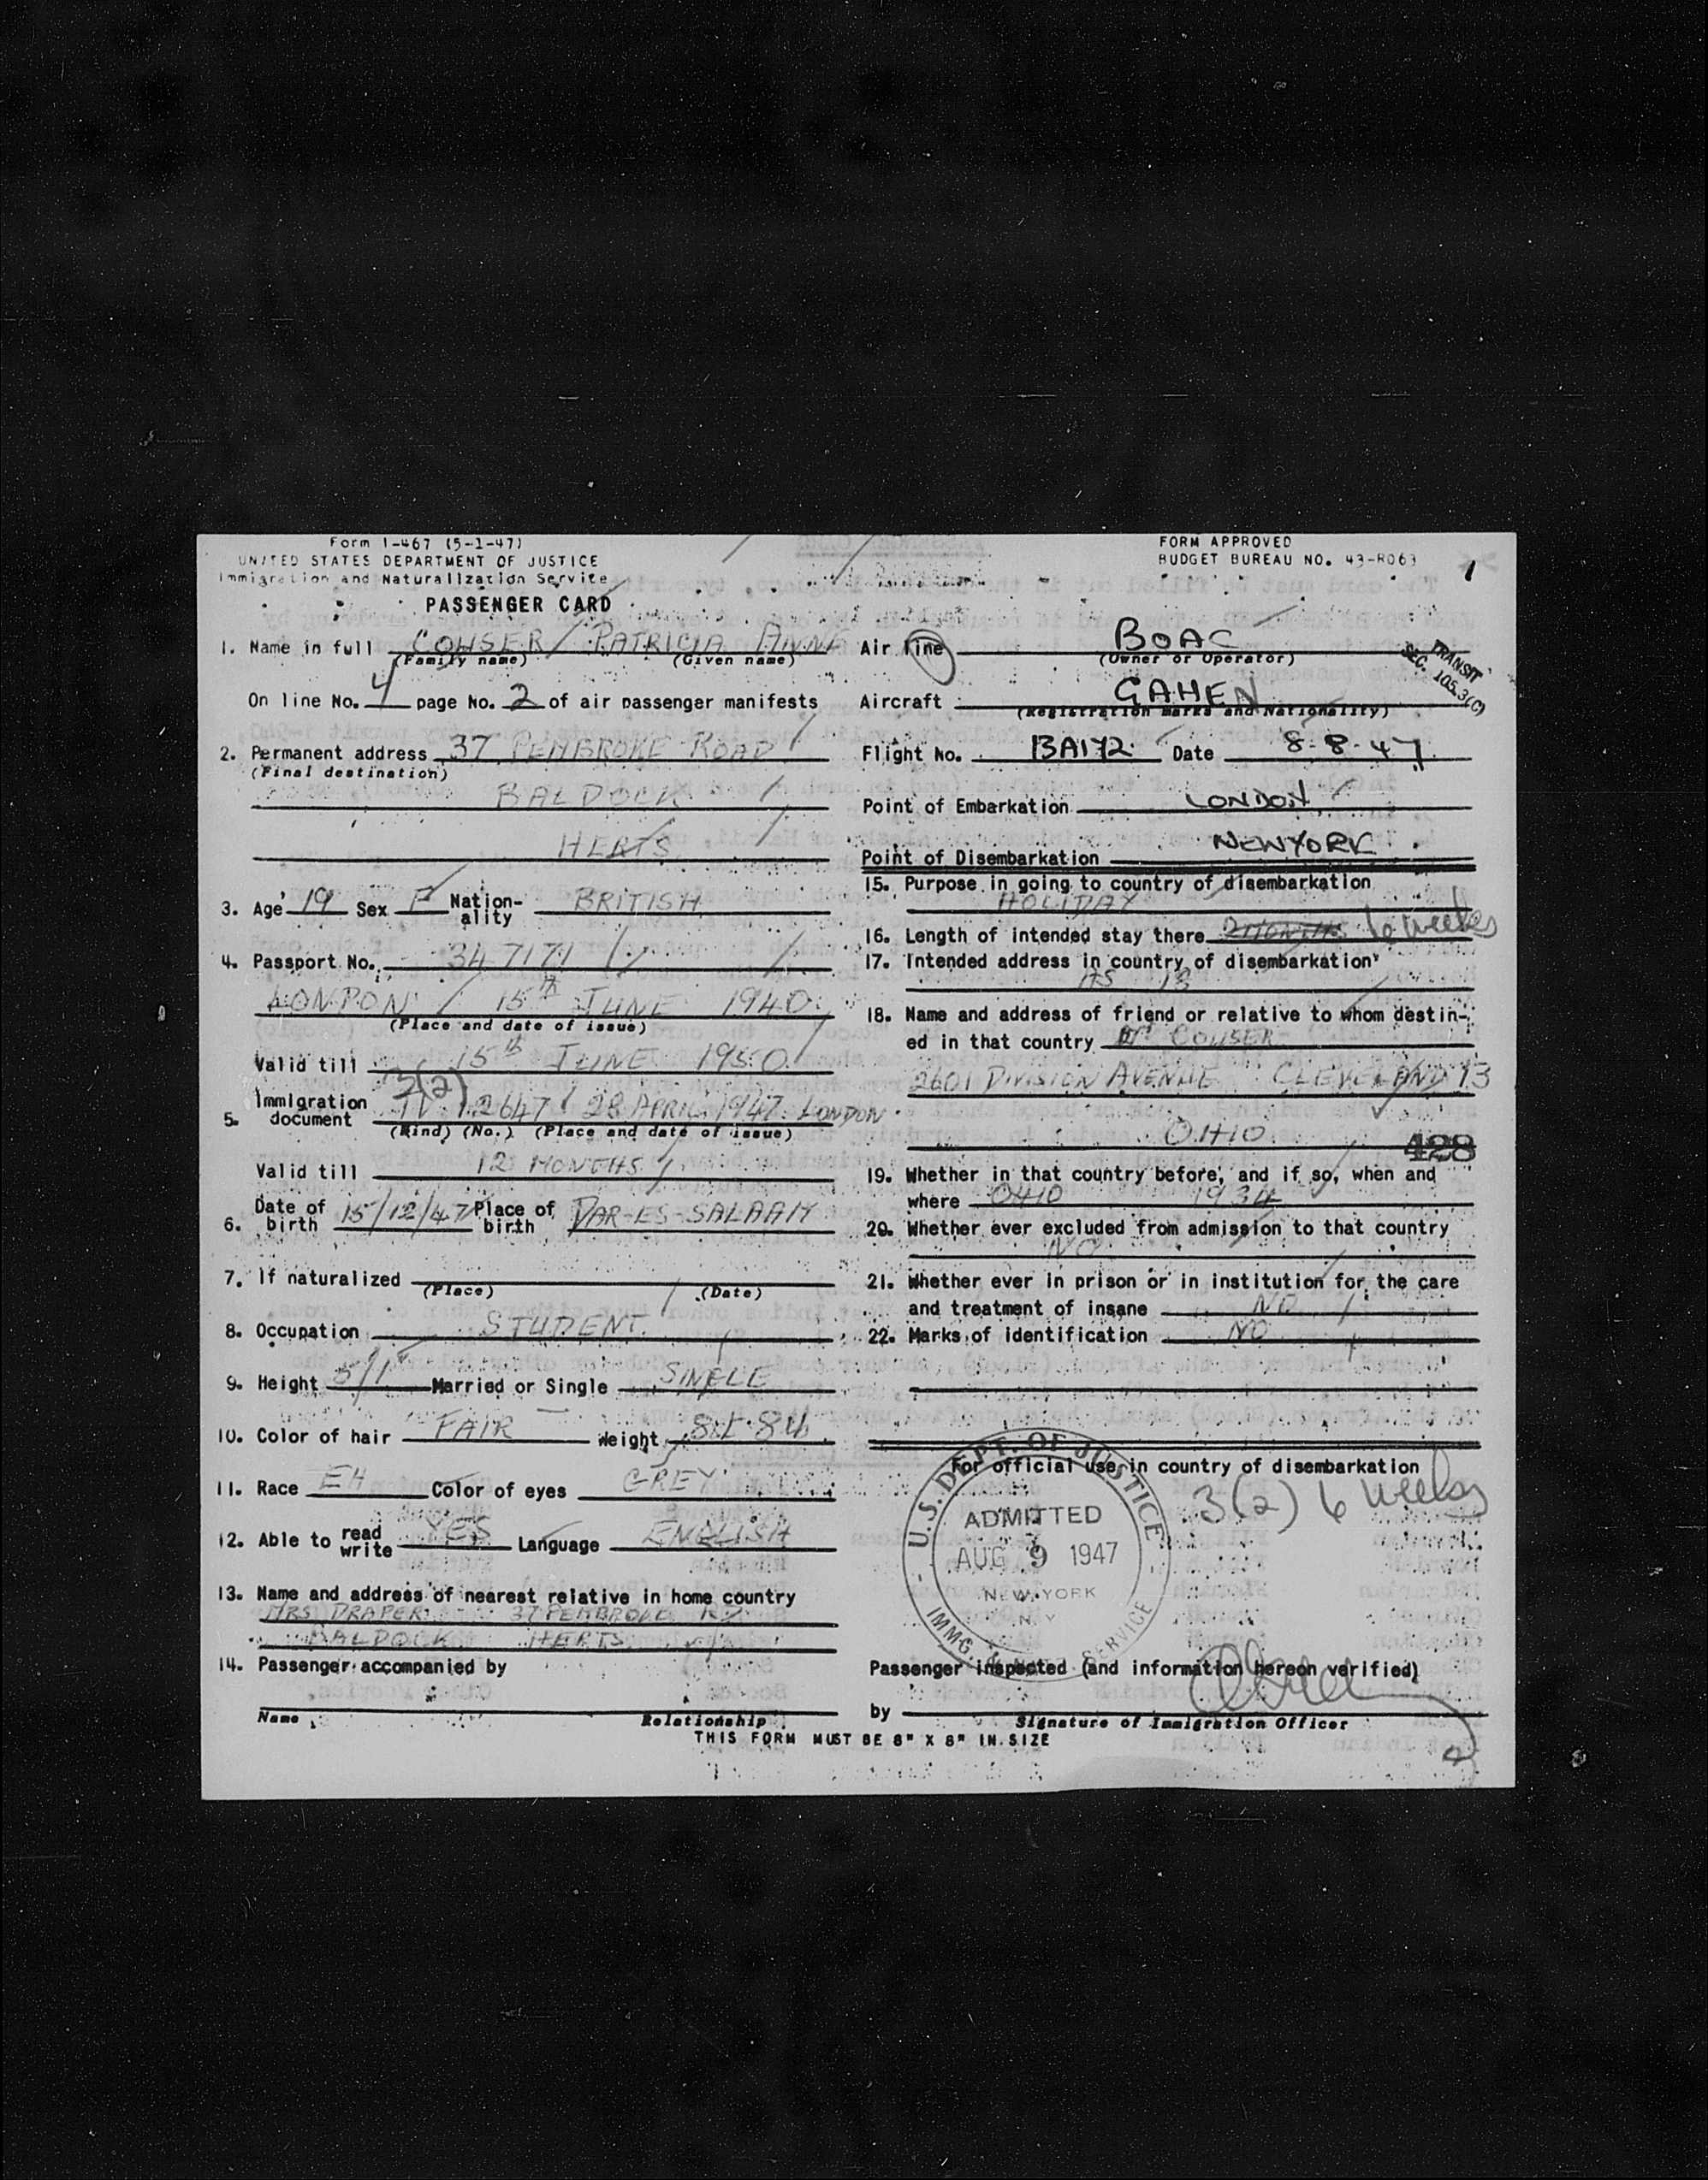 Form I-467 (5-1-47)
UNITED STATES DEPARTMENT OF JUSTICE
Immigration and Naturalization Service
PASSENGER CARD
FORM APPROVED
BUDGET BUREAU NO. 43-R063
1
1. Name in full COUSER PATRICIA ANNE
(Family name) (Given name)
On line No. 4 page No. 2 of air passenger manifests
2. Permanent address 37 PEMBROKE ROAD
(Final destination)
BALDOCK
HERTS
3. Age 19 Sex F Nation-ality BRITISH
4. Passport No. 347171
LONDON 15th JUNE 1940
(Place and date of issue)
Valid till 15th JUNE 1950
3(2)
5. Immigration document TV 12647 28 APRIL 1947 LONDON
(Kind) (No.) (Place and date of issue)
Valid till 12 MONTHS
6. Date of birth 15/12/47 Place of birth DAR-ES-SALAAM
7. If naturalized
(Place) (Date)
8. Occupation STUDENT
9. Height 5/1 Married or Single SINGLE
10. Color of hair FAIR Weight
11. Race EH Color of eyes GREY
12. Able to read write YES Language ENGLISH
13. Name and address of nearest relative in home country
MRS DRAPER 37 PEMBROKE RD
BALDOCK HERTS
14. Passenger accompanied by
Name Relationship
Air line BOAC
(Owner or Operator)
TRANSIT
SEC. 105.3(C)
Aircraft GAHEN
(Registration marks and Nationality)
Flight No. BA172 Date 8-8-47
Point of Embarkation LONDON
Point of Disembarkation NEW YORK
15. Purpose in going to country of disembarkation
HOLIDAY
16. Length of intended stay there 2 MONTHS 6 weeks
17. Intended address in country of disembarkation
AS 18
18. Name and address of friend or relative to whom destin-
ed in that country COUSER
2601 DIVISION AVENUE CLEVELAND 13
OHIO
428
19. Whether in that country before, and if so, when and
where OHIO 1934
20. Whether ever excluded from admission to that country
NO
21. Whether ever in prison or in institution for the care
and treatment of insane NO
22. Marks of identification NO
For official use in country of disembarkation
3(2) 6 weeks
U.S. DEPT. OF JUSTICE
ADMITTED
AUG 9 1947
NEW YORK
N.Y
IMMG. SERVICE
Passenger inspected (and information hereon verified)
by
Signature of Immigration Officer
THIS FORM MUST BE 8" X 8" IN SIZE